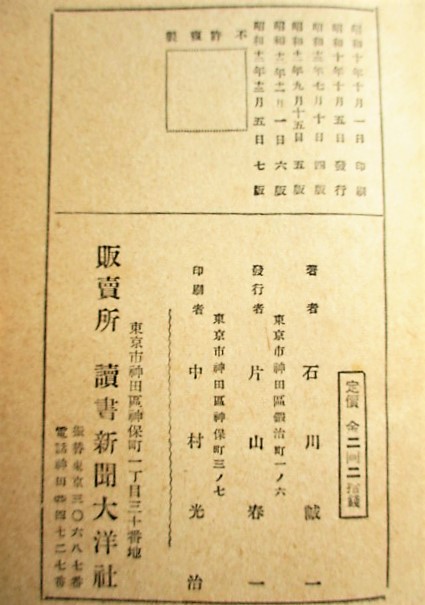 昭和十年十月一日印刷
昭和十年十月五日發行
昭和十二年七月十日四版
昭和十二年九月十五日五版
昭和十二年十一月一日六版
昭和十二年十二月五日七版
不許復製
定價金二円二拾錢
著者 石川誠一
東京市神田區鍛冶町一ノ六
發行者 片山春一
東京市神田區神保町三ノ七
印刷者 中村光治
東京市神田區神保町一丁目三十番地
販賣所 讀書新聞大洋社
振替東京三〇六八七番
電話神田四七二七番